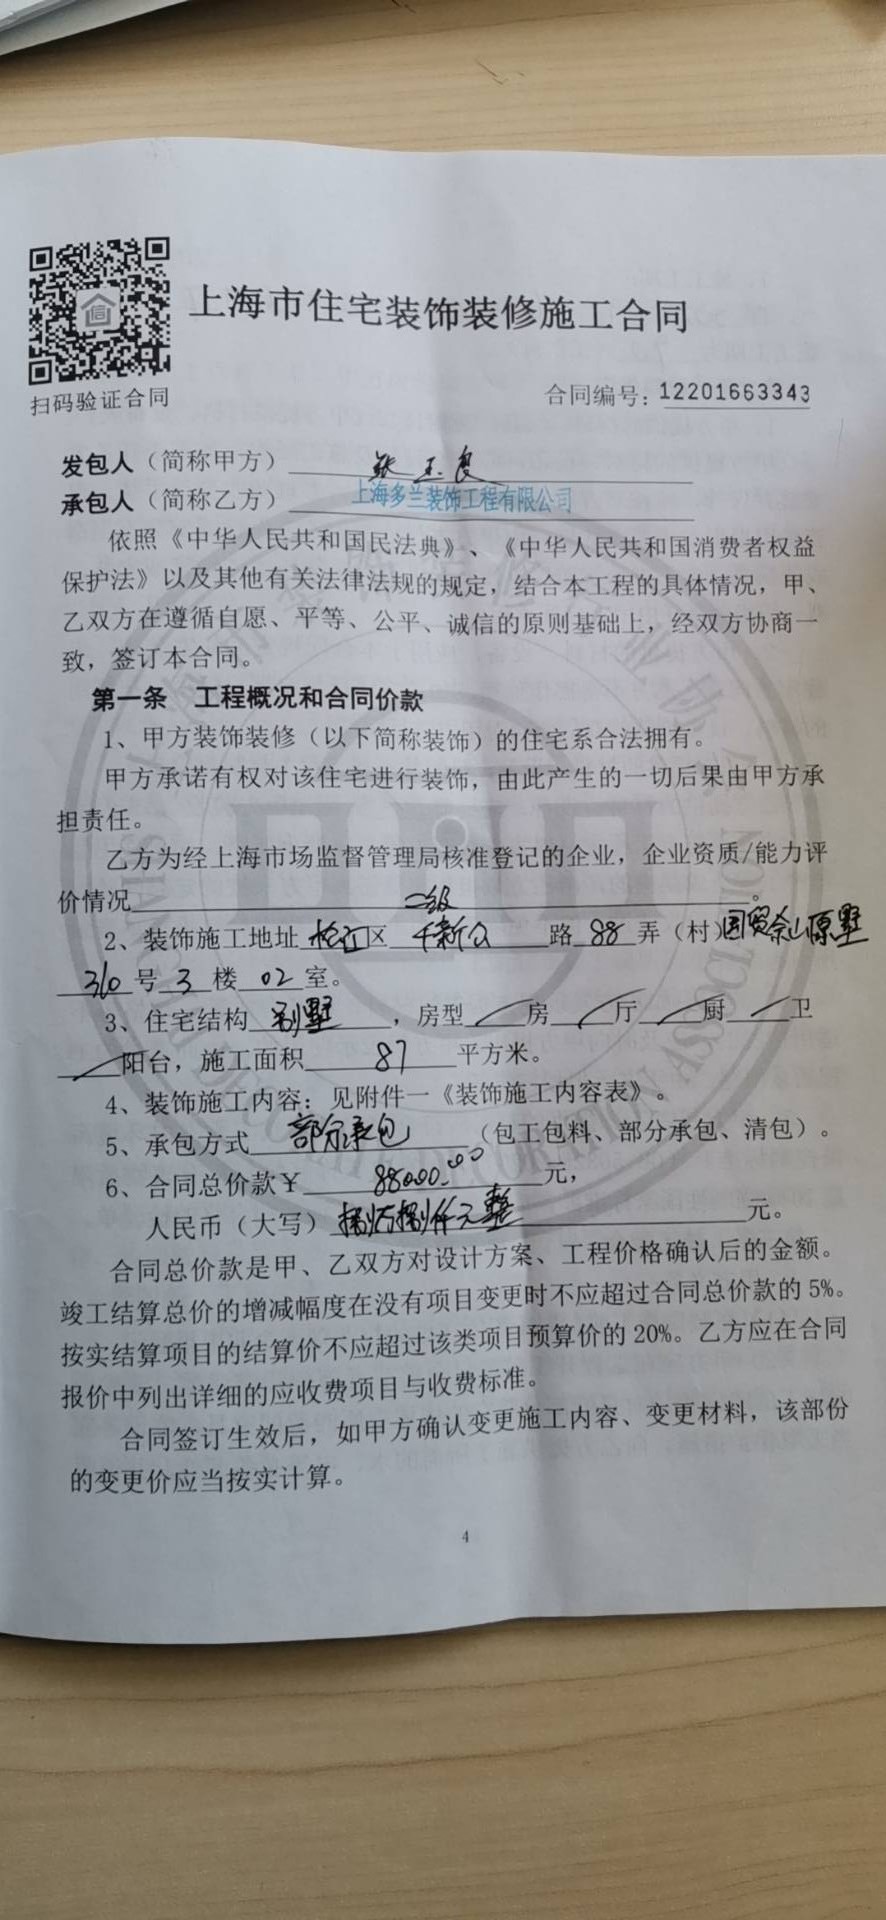 上海市住宅装饰装修施工合同
扫码验证合同
合同编号：12201663343
发包人（简称甲方）张玉良
承包人（简称乙方）上海多兰装饰工程有限公司
依照《中华人民共和国民法典》、《中华人民共和国消费者权益
保护法》以及其他有关法律法规的规定，结合本工程的具体情况，甲、
乙双方在遵循自愿、平等、公平、诚信的原则基础上，经双方协商一
致，签订本合同。
第一条 工程概况和合同价款
1、甲方装饰装修（以下简称装饰）的住宅系合法拥有。
甲方承诺有权对该住宅进行装饰，由此产生的一切后果由甲方承
担责任。
乙方为经上海市场监督管理局核准登记的企业，企业资质/能力评
价情况二级。
2、装饰施工地址松江区千新公路88弄（村）国贸佘山原墅
310号3楼02室。
3、住宅结构别墅，房型/房/厅/厨/卫
/阳台，施工面积87平方米。
4、装饰施工内容：见附件一《装饰施工内容表》。
5、承包方式部分承包（包工包料、部分承包、清包）。
6、合同总价款￥88000.00元，
人民币（大写）捌万捌仟元整元。
合同总价款是甲、乙双方对设计方案、工程价格确认后的金额。
竣工结算总价的增减幅度在没有项目变更时不应超过合同总价款的5%。
按实结算项目的结算价不应超过该类项目预算价的20%。乙方应在合同
报价中列出详细的应收费项目与收费标准。
合同签订生效后，如甲方确认变更施工内容、变更材料，该部份
的变更价应当按实计算。
4